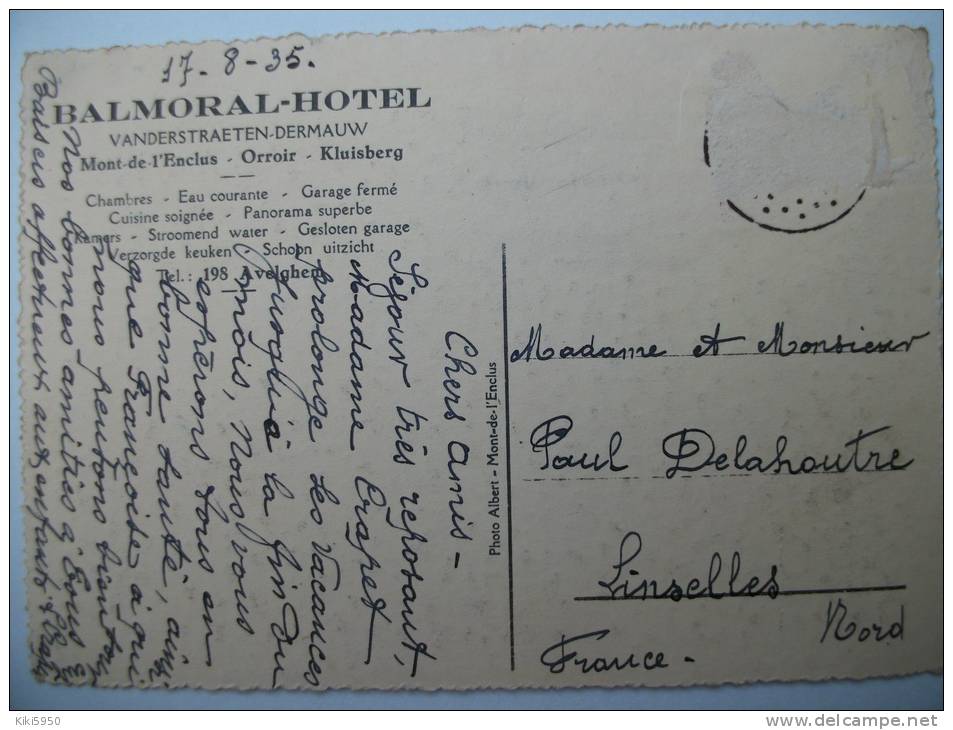 17-8-35.
BALMORAL-HOTEL
VANDERSTRAETEN-DERMAUW
Mont-de-l'Enclus - Orroir - Kluisberg
Chambres - Eau courante - Garage fermé
Cuisine soignée - Panorama superbe
Kamers - Stroomend water - Gesloten garage
Verzorgde keuken - Schoon uitzicht
Tel.: 198 Avelghem
Chers amis -
Séjour très reposant,
Madame
prolonge les vacances
jusqu'à la fin du
mois, Nous vous
espérons tous en
bonne santé, ainsi
que Françoise à qui
nous pensons bien
Nos bonnes amitiés à tous
Baisers affectueux aux enfants
Photo Albert - Mont-de-l'Enclus
Madame et Monsieur
Paul Delahoutre
Linselles
Nord
France -
Kiki5950
www.delcampe.net